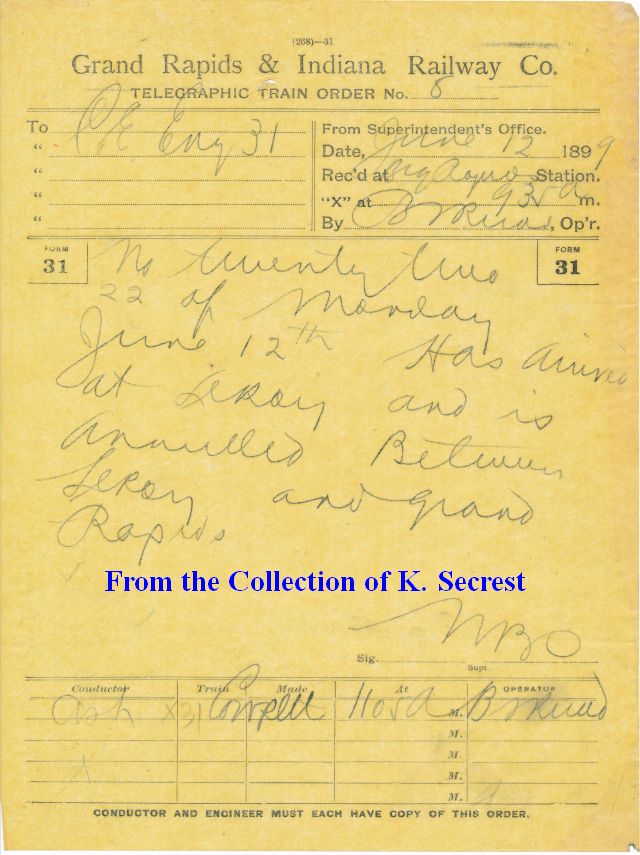 (268)—31
Grand Rapids & Indiana Railway Co.
TELEGRAPHIC TRAIN ORDER No. 8
To C & E Eng 31
"
"
"
"
From Superintendent's Office.
Date, June 12 1899
Rec'd at Big Rapids Station.
"X" at 935 a m.
By Op'r.
FORM
31
FORM
31
No twenty two
22 of Monday
June 12th Has arrived
at LeRoy and is
annulled Between
LeRoy and Grand
Rapids
From the Collection of K. Secrest
Sig.
Supt.
Conductor Train Made At OPERATOR
Ash X31 Complete 1105 A M.
M.
M.
M.
M.
CONDUCTOR AND ENGINEER MUST EACH HAVE COPY OF THIS ORDER.